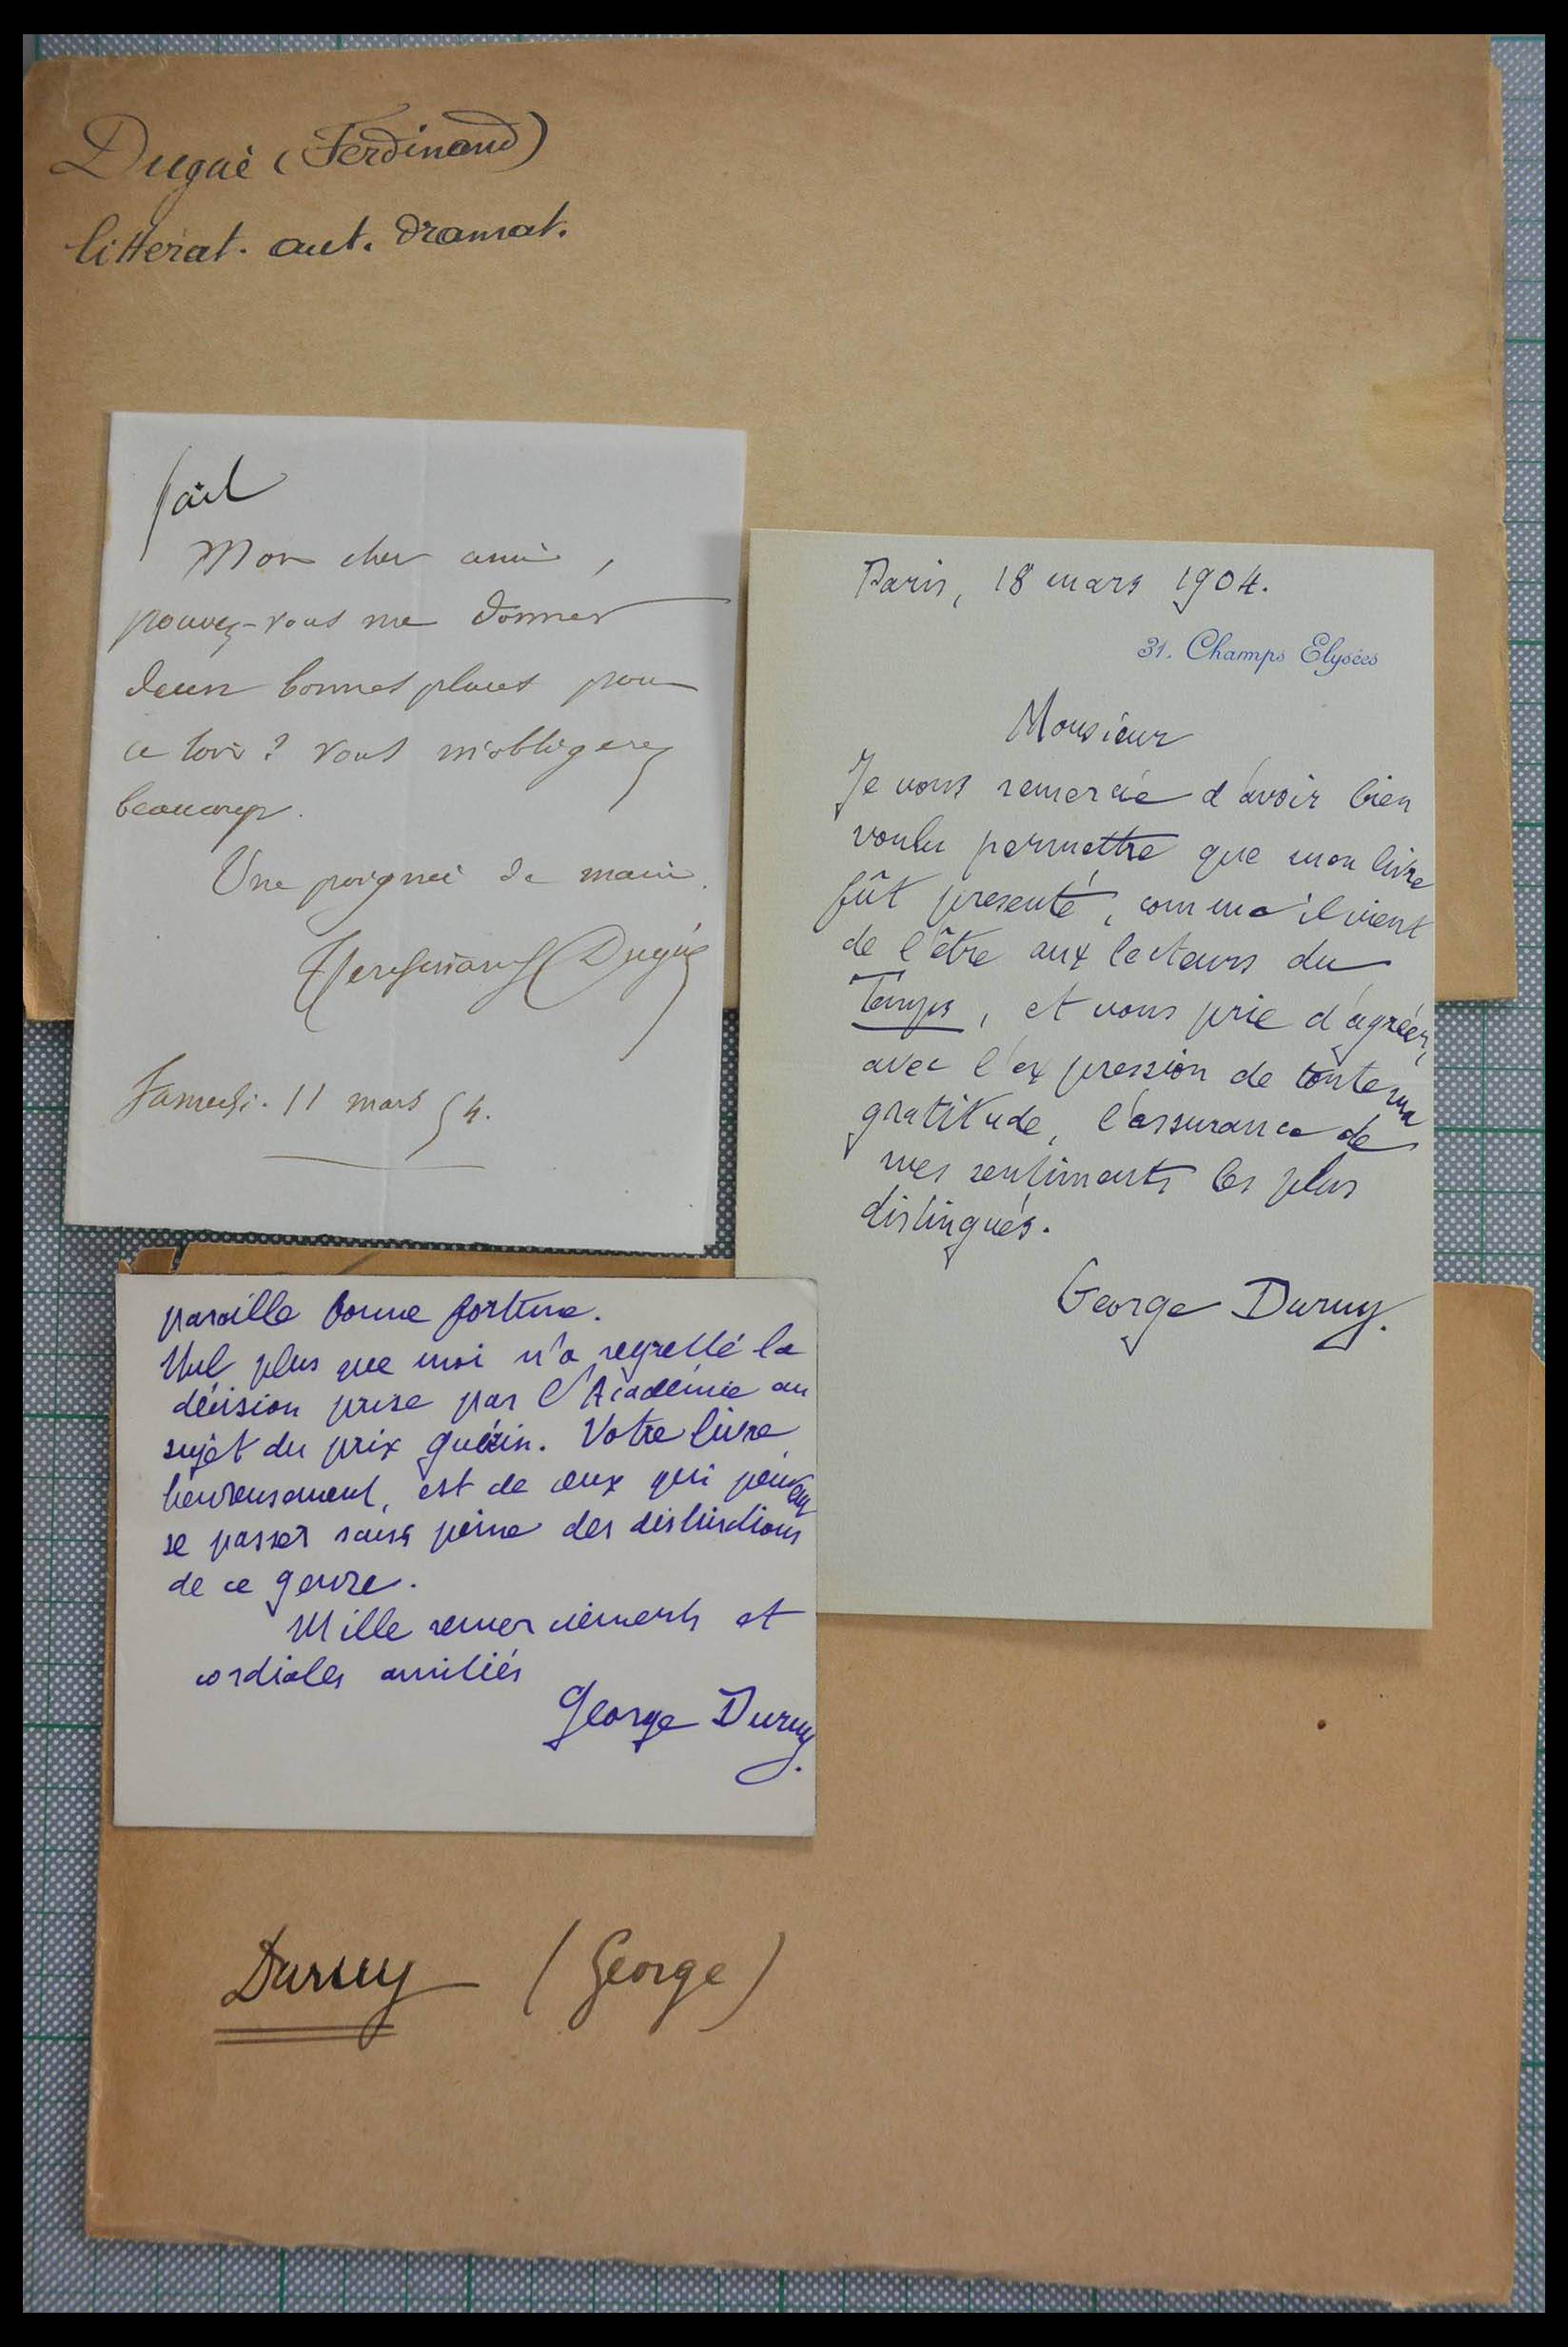 Dugué (Ferdinand)
littérat. aut. dramat.
fait
Mon cher ami,
pouvez-vous me donner
deux bonnes places pour
ce soir? Vous m'obligerez
beaucoup.
Une poignée de main.
Ferdinand Dugué
Samedi. 11 mars 54.
Paris, 18 mars 1904.
31. Champs Elysées
Monsieur
Je vous remercie d'avoir bien
voulu permettre que mon livre
fût présenté, comme il vient
de l'être aux lecteurs du
Temps, et vous prie d'agréer,
avec l'expression de toute ma
gratitude, l'assurance de
mes sentiments les plus
distingués.
George Duruy.
pareille bonne fortune.
Nul plus que moi n'a regretté la
décision prise par l'Académie au
sujet du prix Guérin. Votre livre
heureusement, est de ceux qui peuvent
se passer sans peine des distinctions
de ce genre.
Mille remerciements et
cordiales amitiés
George Duruy.
Duruy (George)